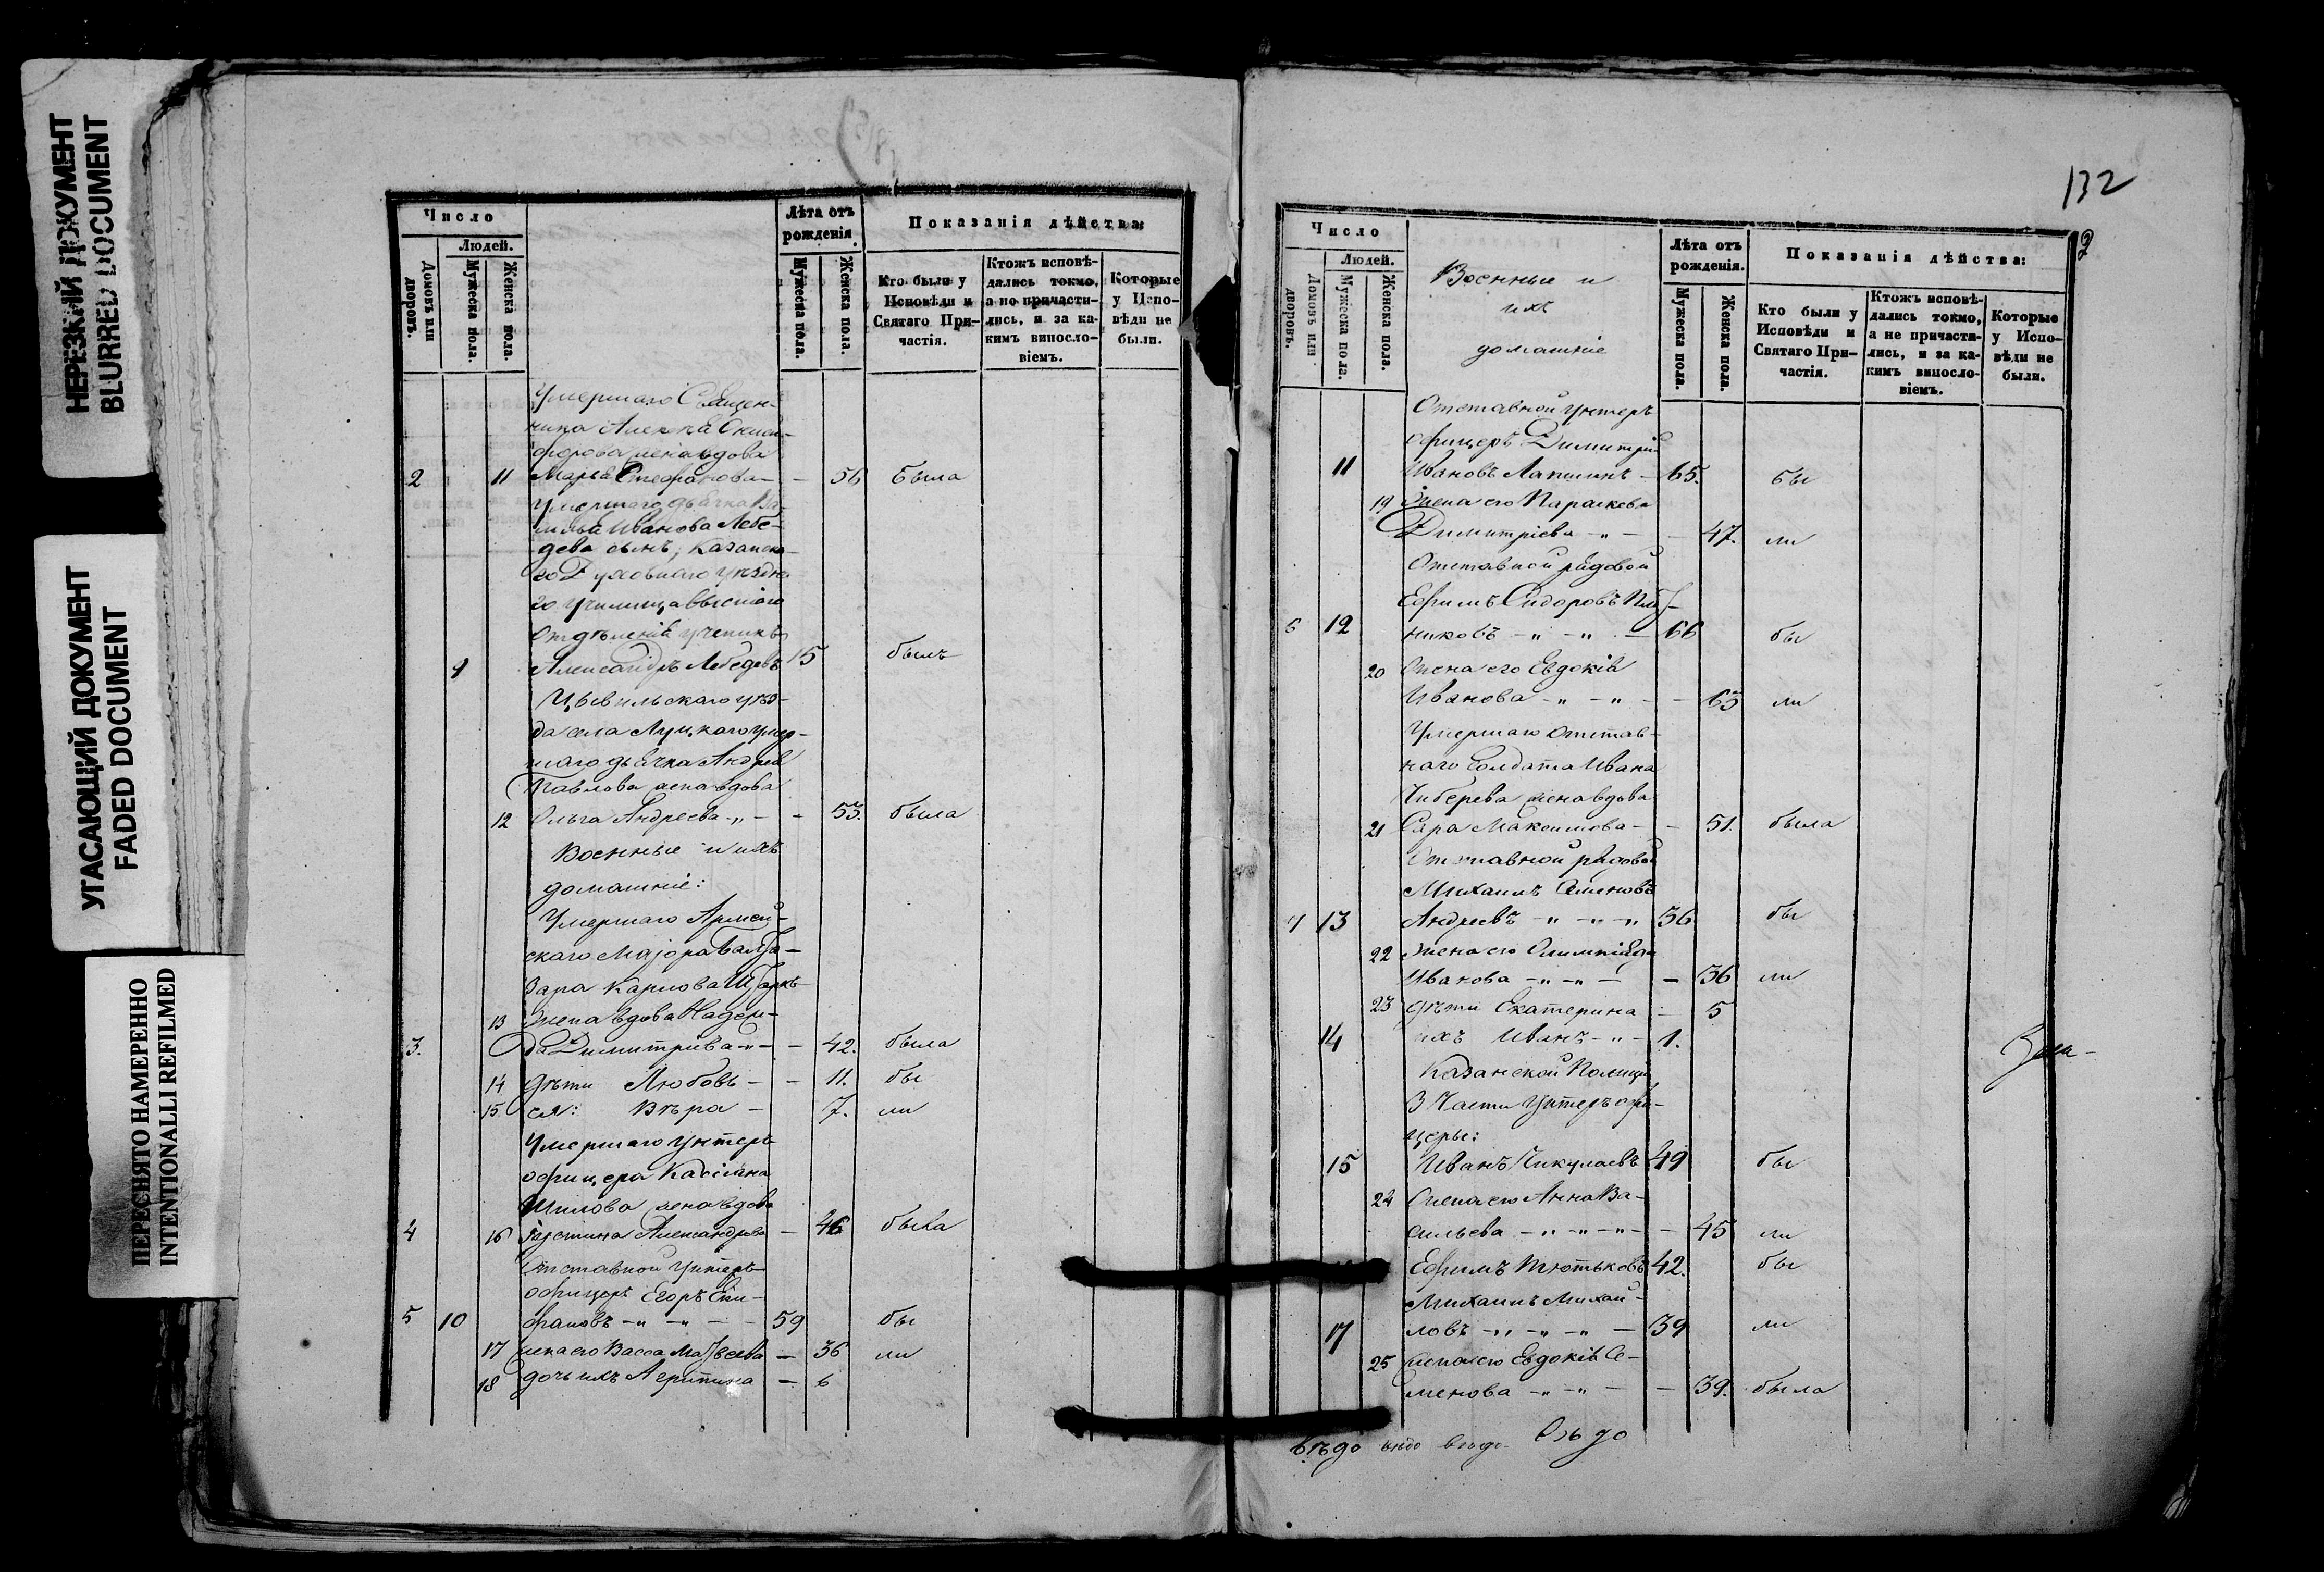 НЕРЕЗКИЙ ДОКУМЕНТ
BLURRED DOCUMENT
УГАСАЮЩИЙ ДОКУМЕНТ
FADED DOCUMENT
ПЕРЕСНЯТО НАМЕРЕННО
INTENTIONALLI REFILMED
Число
Людей.
Домовъ или дворовъ.
Мужеска пола.
Женска пола.
Лѣта отъ рожденія
Мужеска пола.
Женска пола.
Показанія дѣйства:
Кто были у Исповѣди и Святаго При-частія.
Ктожъ исповѣ-дались токмо, а не причасти-лись, и за ка-кимъ виносло-віемъ.
Которые у Испо-вѣди не были.
Умершаго Священ-
ника Алексѣя
жена вдова
2 11 Марья Стефанова - - 56 была
Умершаго дьячка
Иванова Лебе-
дева сынъ, Казанска-
го Духовнаго уѣздна
го училища высшаго
отдѣленія ученикъ
9 Александръ Лебедевъ 15 былъ
Цывильскаго уѣз-
да села умер-
шаго дьячка Андрея
Павлова жена вдова
12 Ольга Андреева -"- - 53. была
Военные и ихъ
домашніе:
Умершаго Армей-
скаго Маіора
Карлова
13 жена вдова Надеж-
3. да Димитріева -"- - 42. была
14 дѣти Любовь - - 11. бы
15 ея: Вѣра - 7. ли
Умершаго унтеръ
офицера Кассіана
Шилова жена вдова
4 16 Іустина Александрова - 46 была
Отставной Унтеръ
офицеръ Егоръ Епи-
5 10 фановъ -" -" - - 59 бы
17 жена его Васса Матвѣева - 36 ли
18 дочь ихъ Агрипина - 6
132
2
Число
Людей.
Домовъ или дворовъ.
Мужеска пола.
Женска пола.
Военные и
ихъ
домашніе
Лѣта отъ рожденія.
Мужеска пола.
Женска пола.
Показанія дѣйства:
Кто были у Исповѣди и Святаго При-частія.
Ктожъ исповѣ-дались токмо, а не причасти-лись, и за ка-кимъ виносло-віемъ.
Которые у Испо-вѣди не были.
Отставной унтеръ
офицеръ Димитрій
11 Ивановъ Лапшинъ - 65. бы
19 Жена его Параскева
Димитріева -"- - 47. ли
Отставной рядовой
Ефимъ Сидоровъ
6 12 никовъ -" -" - 66 бы
20 Жена его Евдокія
Иванова -" -" - - 63 ли
Умершаго отстав-
наго Солдата Ивана
Чиберева жена вдова
21 Сара Максимова - - 51. была
Отставной рядовой
Михаилъ Семеновъ
7 13 Андреевъ -" -" -" 56 бы
22 Жена его Олимпіада
Иванова -" -" - - 36 ли
23 дѣти Екатерина - 5
14 ихъ Иванъ -"- 1.
Казанской Полиціи
3 Части Унтеръ офи-
церы:
15 Иванъ Никулаевъ 49 бы
24 Жена его Анна Ва-
сильева -" -" -" - - 45 ли
Ефимъ Тютьковъ 42. бы
Михаилъ Михай-
17 ловъ -" -" -" - 39 ли
25 Жена его Евдокія Се-
менова -" -" - - 39. была